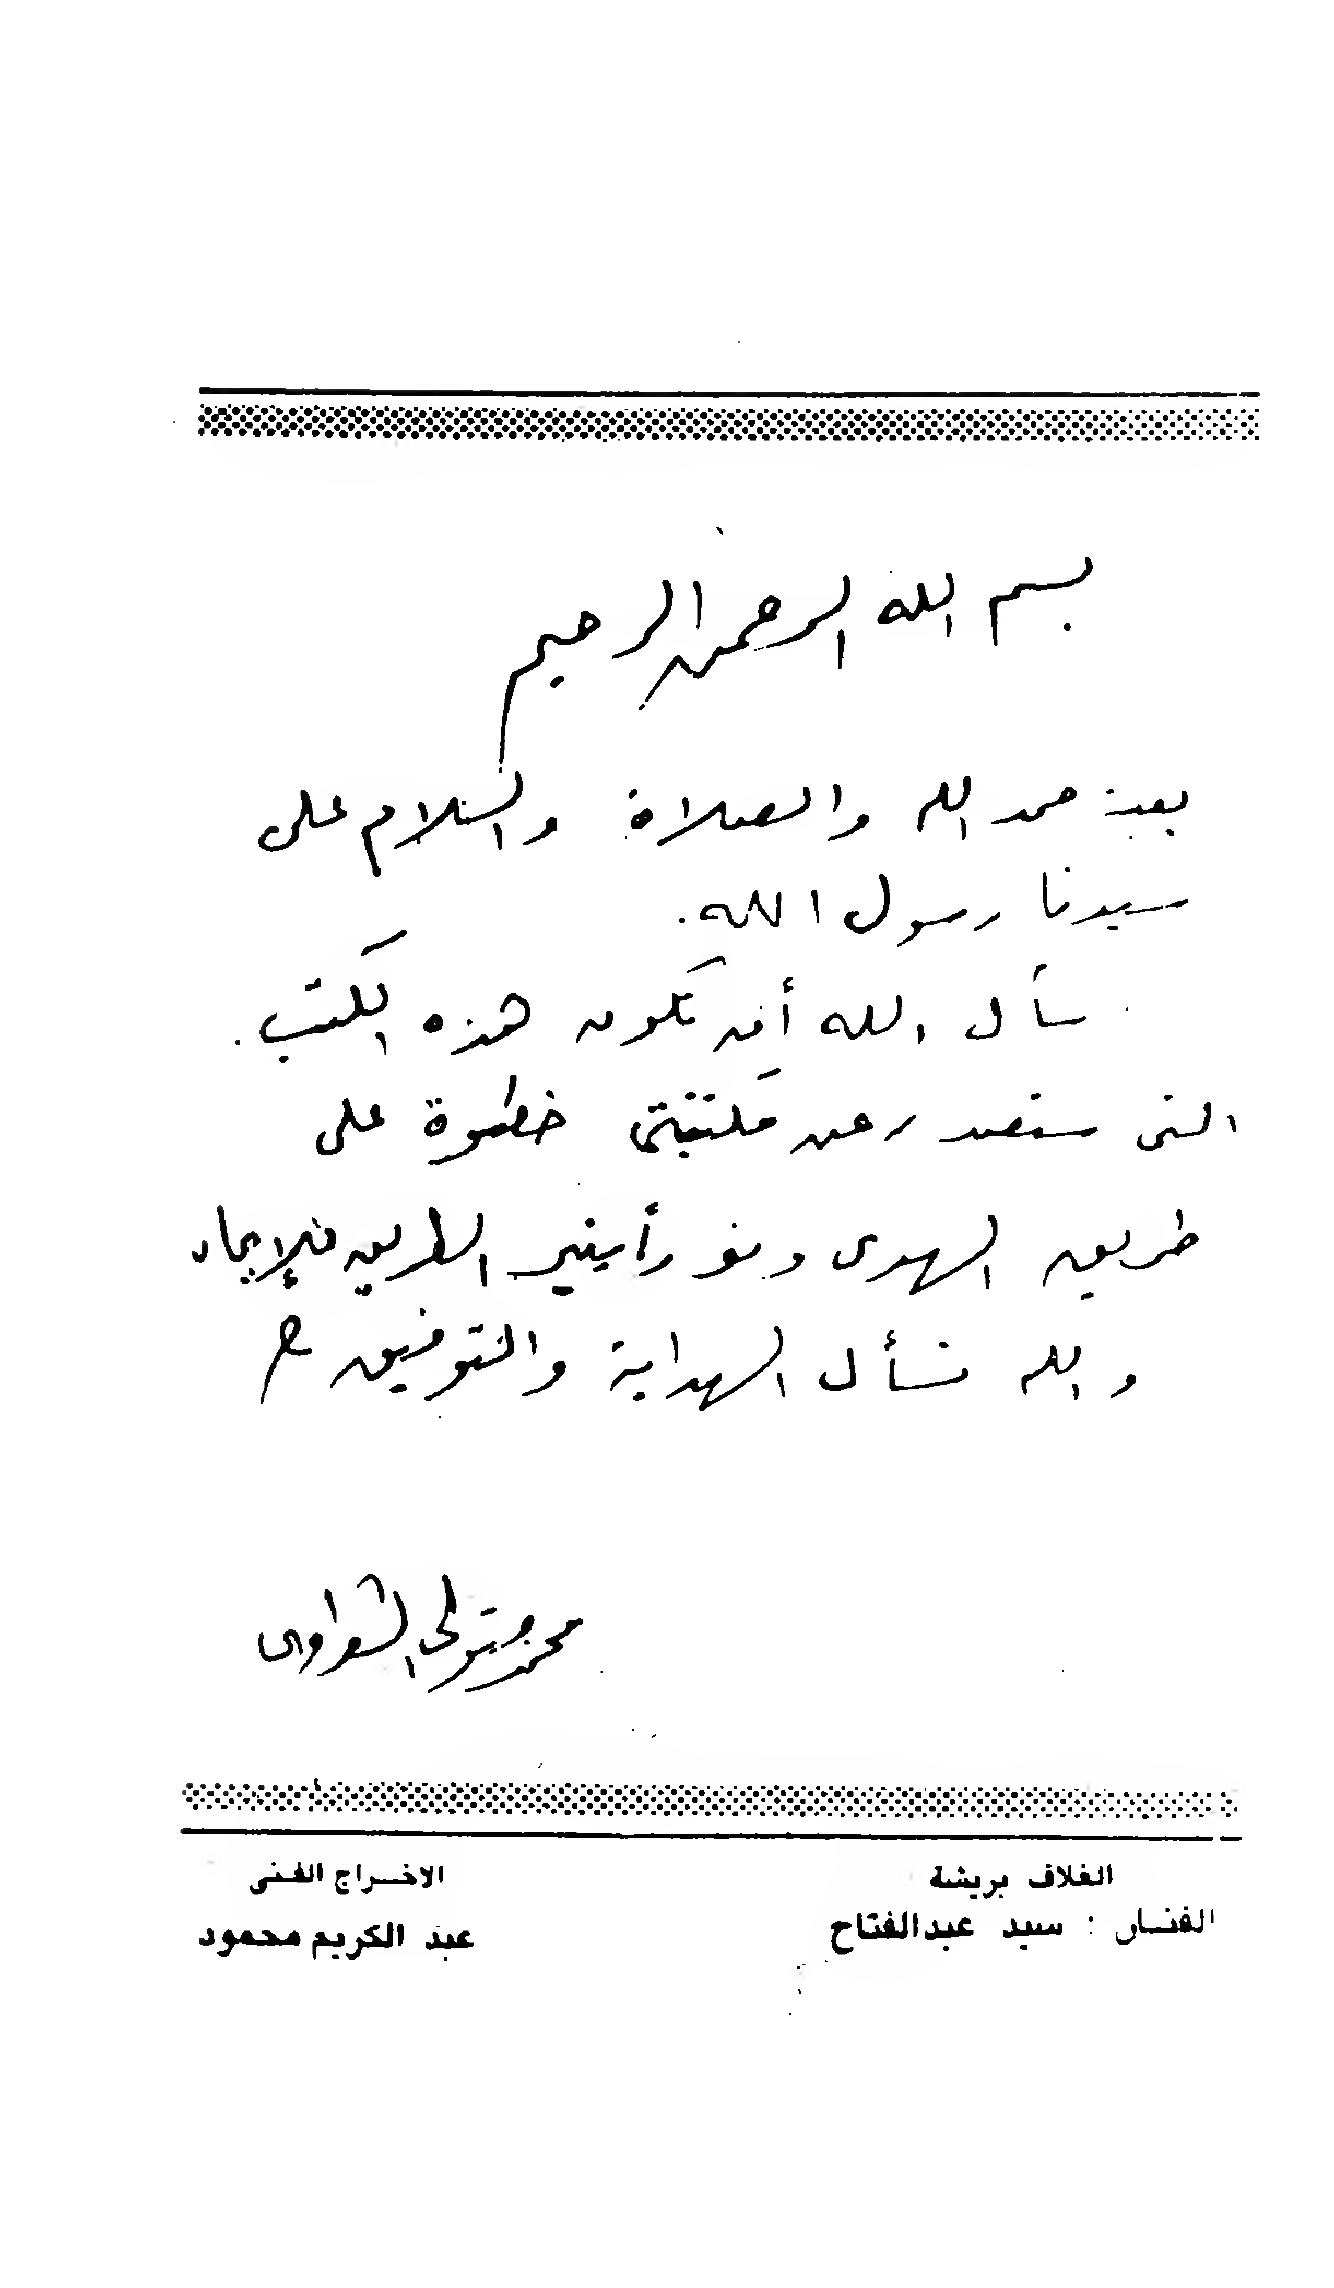 بسم الله الرحمن الرحيم
بعد حمد الله والصلاة والسلام على
سيدنا رسول الله.
نسأل الله أن تكون هذه الكتب
التى ستصدر عن مكتبتى خطوة على
طريق الهدى ونورا ينير الطريق للإيمان
والله نسأل الهداية والتوفيق
محمد متولى الشعراوى
الغلاف بريشة
الفنان : سيد عبدالفتاح
الاخراج الفنى
عبد الكريم محمود